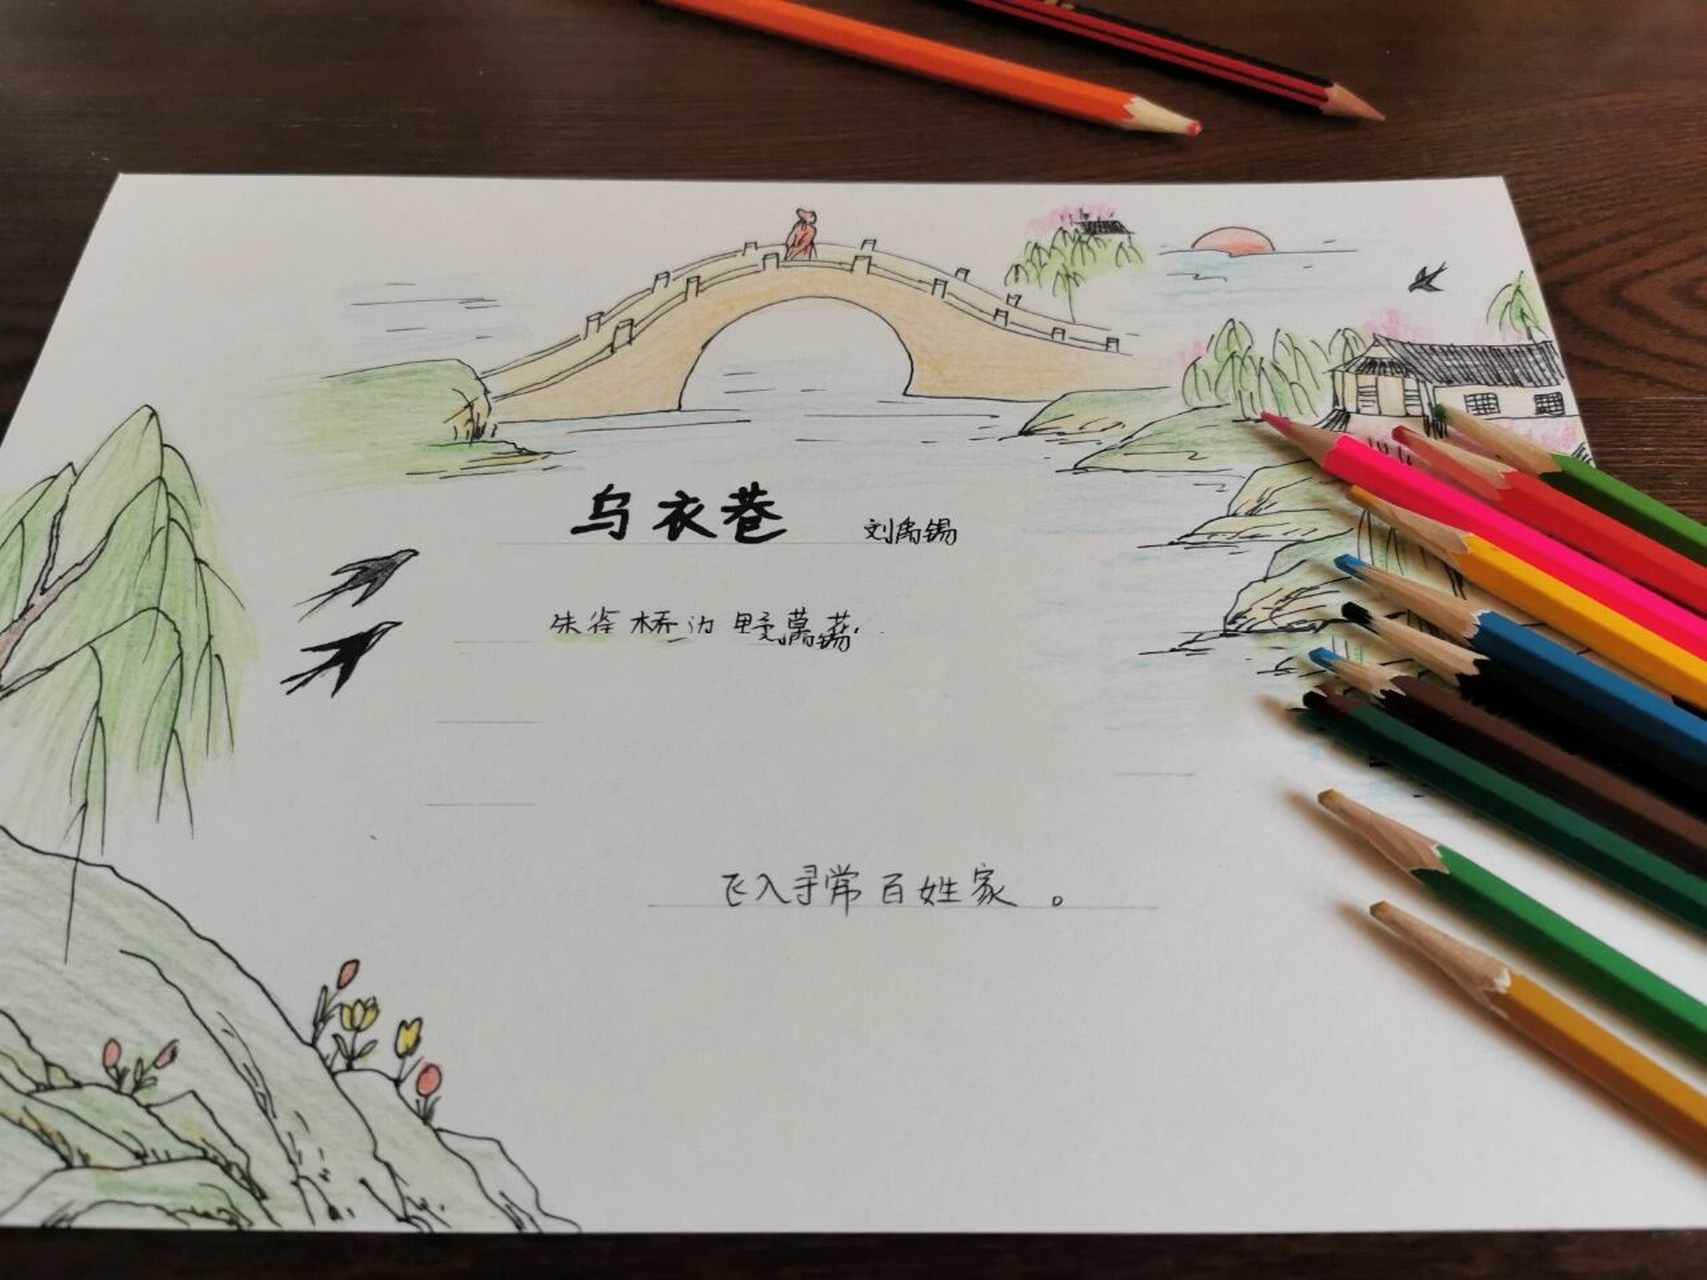 乌衣巷 刘禹锡
朱雀桥边野
飞入寻常百姓家。